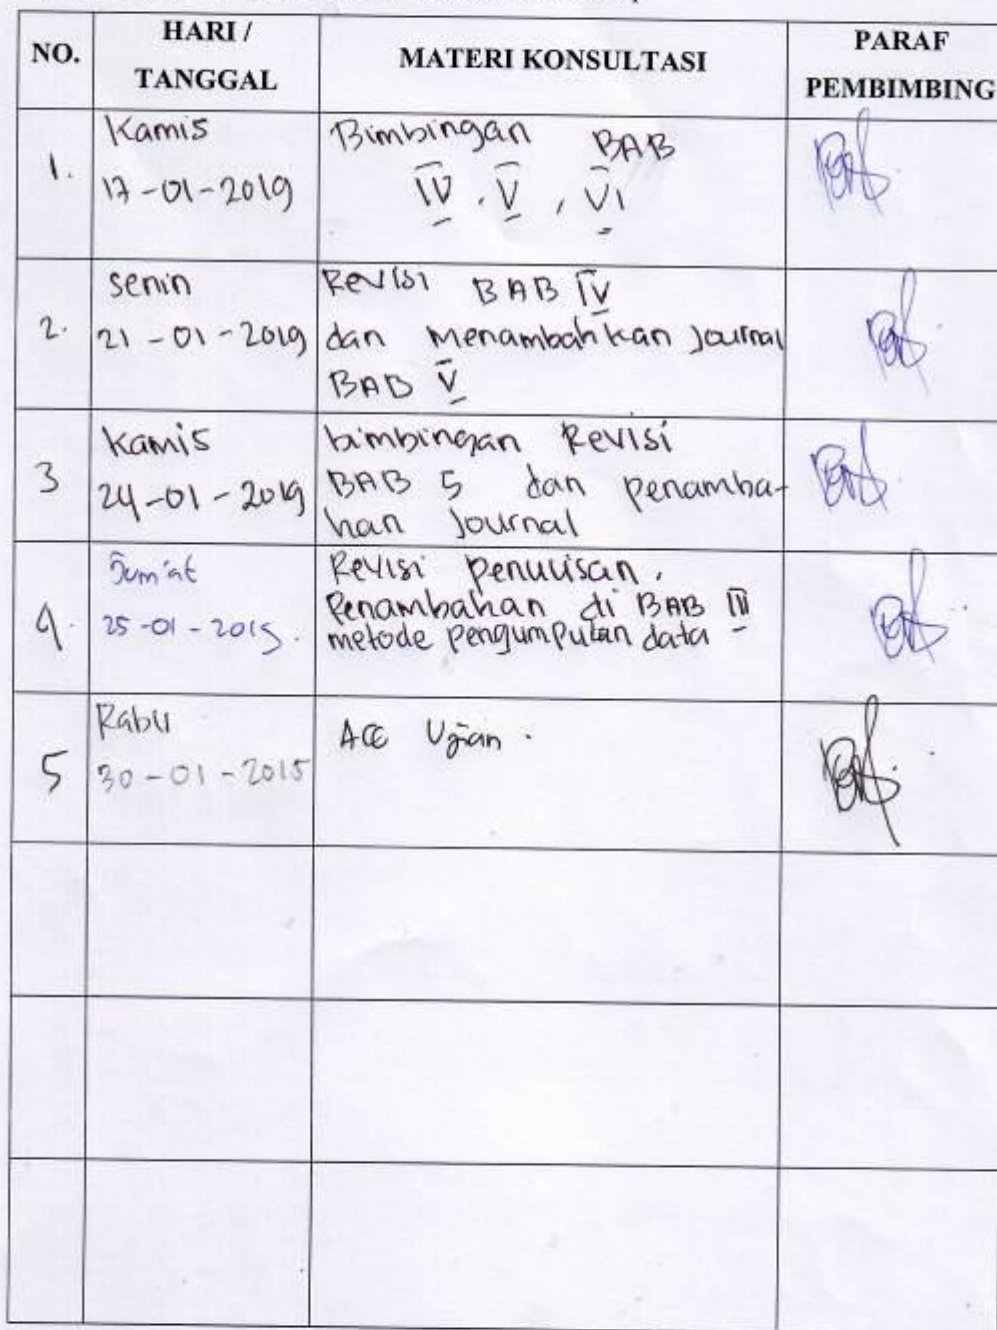 NO.
HARI /
TANGGAL
MATERI KONSULTASI
PARAF
PEMBIMBING
1.
Kamis
17-01-2019
Bimbingan BAB
IV, V, VI
2.
Senin
21-01-2019
Revisi BAB IV
dan Menambahkan Journal
BAB V
3
Kamis
24-01-2019
bimbingan Revisi
BAB 5 dan penamba-
han Journal
4.
Jum'at
25-01-2019.
Revisi penulisan.
Penambahan di BAB
metode pengumpulan data
5
Rabu
30-01-2019
ACC Ujian.